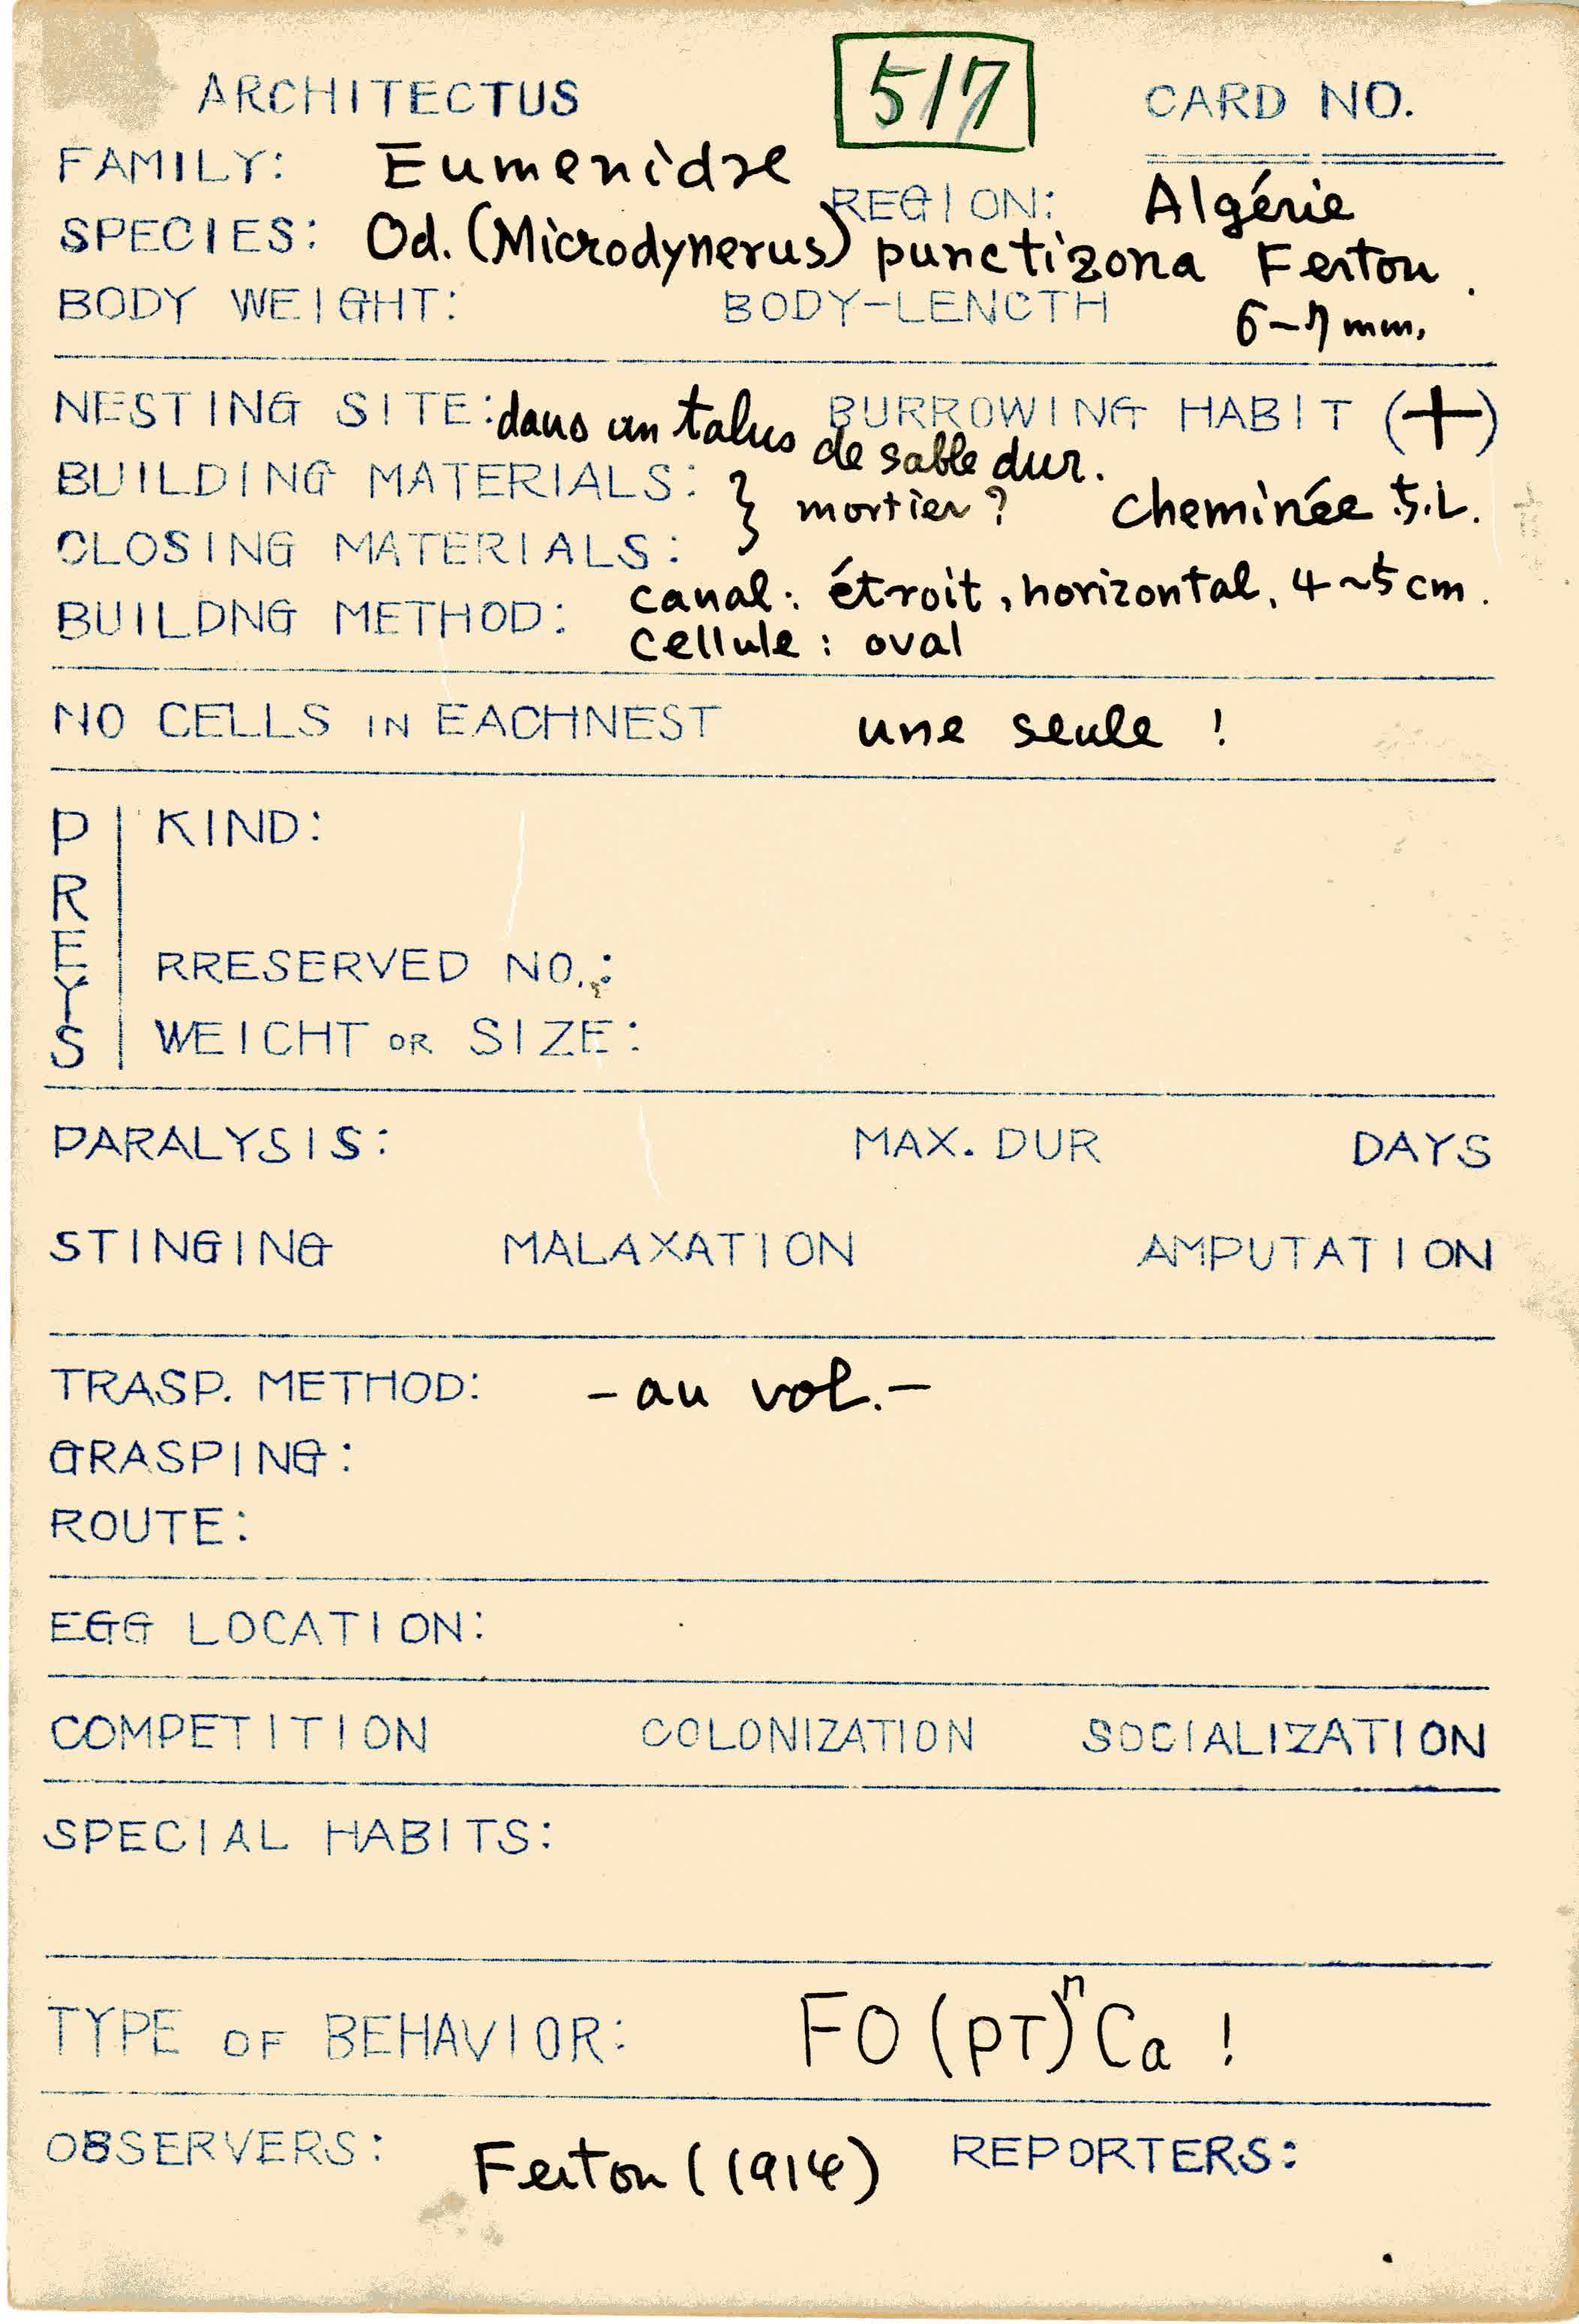 ARCHITECTUS 517 CARD NO.
FAMILY: Eumenidae
REGION: Algérie
SPECIES: Od. (Microdynerus) punctizona Ferton.
BODY WEIGHT: BODY-LENCTH 6-7 mm.
NESTING SITE: dans un talus de sable dur. BURROWING HABIT (+)
BUILDING MATERIALS: } mortier? Cheminée
CLOSING MATERIALS:
BUILDNG METHOD: canal: étroit, horizontal, 4~5 cm.
cellule: oval
NO CELLS IN EACHNEST une seule !
PREYS
KIND:
RRESERVED NO.:
WEICHT OR SIZE:
PARALYSIS: MAX. DUR DAYS
STINGING MALAXATION AMPUTATION
TRASP. METHOD: -au vol.-
GRASPING:
ROUTE:
EGG LOCATION:
COMPETITION COLONIZATION SOCIALIZATION
SPECIAL HABITS:
TYPE OF BEHAVIOR: FO(PT)ⁿCa !
OBSERVERS: Ferton (1914) REPORTERS: